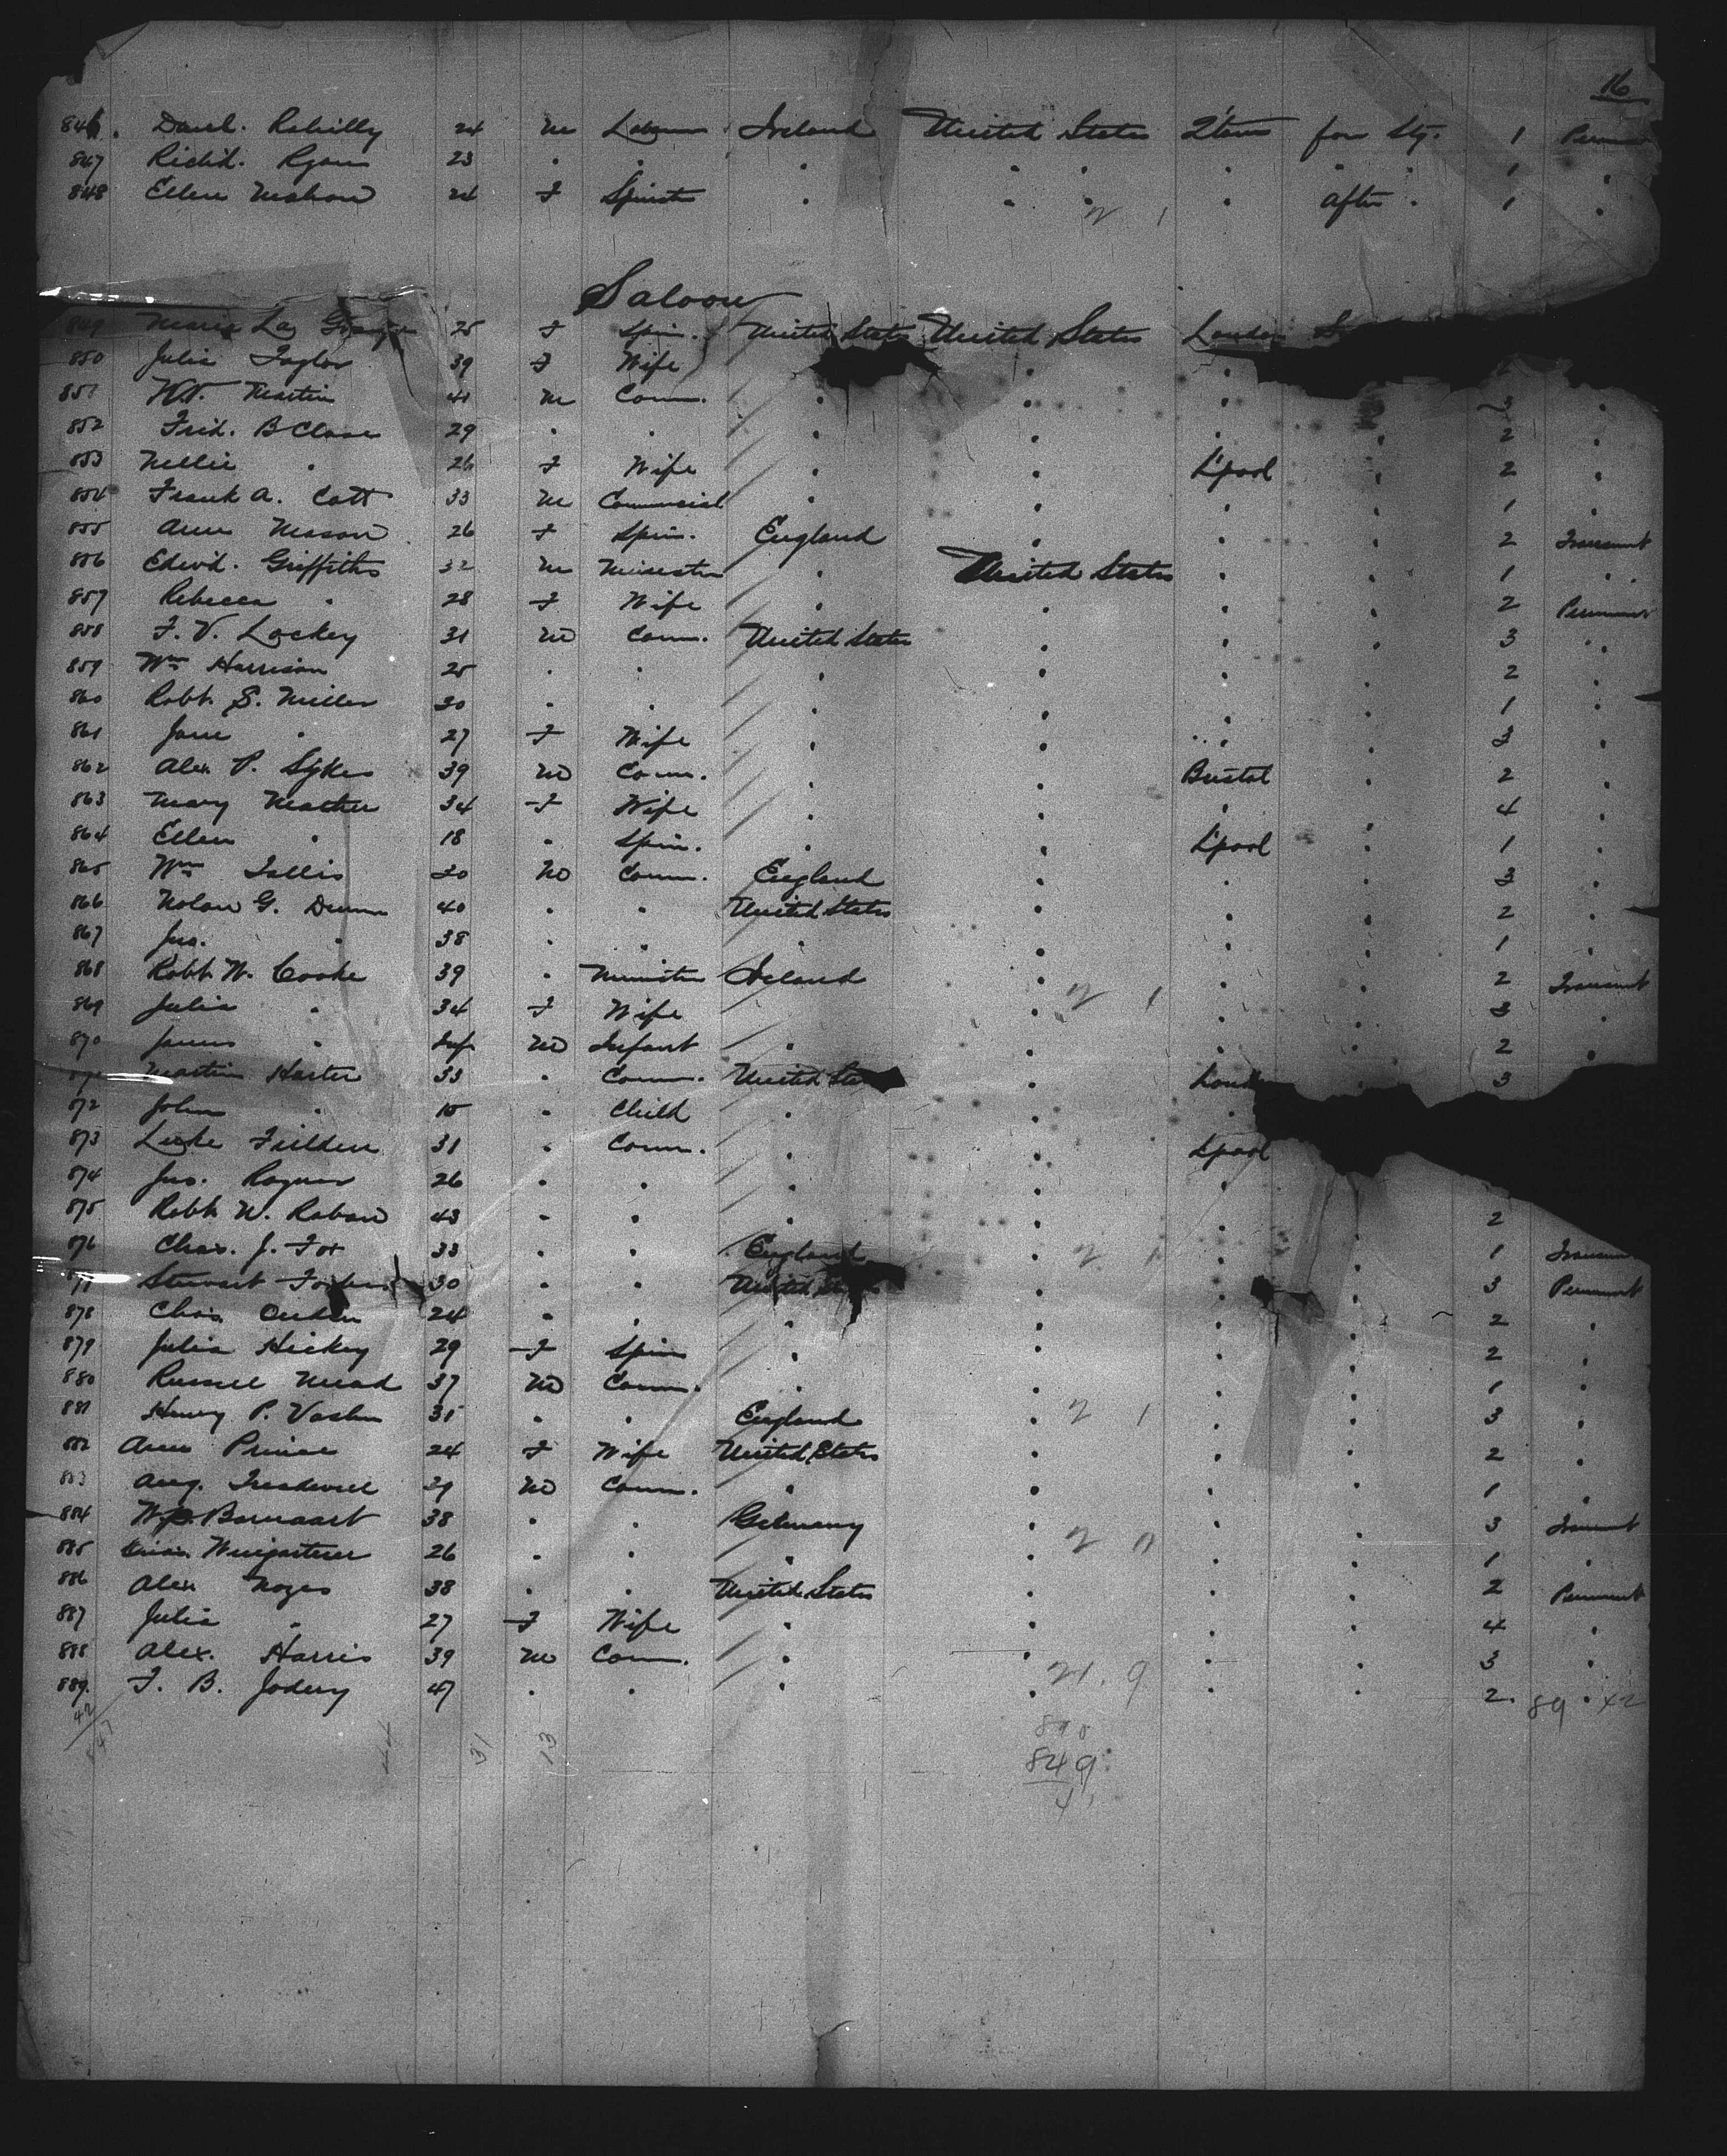 16
846. Danl. Rahilly 24 m Laborer Ireland United States Q'town for Stg. 1
847 Richd. Ryan 23 " " " " " " " " 1 "
848 Ellen Mahon 24 F Spinster " " " " after " 1 "
Saloon
849 Maria La 25 F Spin. United States United States London
850 Julia Taylor 39 F Wife " "
851 Martin 41 m Com. " " " " 3 "
852 Fred. B Close 29 " " " " " " 2 "
853 Nellie " 26 F Wife " " L'pool " 2 "
854 Frank A. Catt 33 m Commercial " " " " 1 "
855 Ann Mason 26 F Spin. England " " " 2 Transient
856 Edwd. Griffiths 32 m Minister " United States " " 1 "
857 Rebecca " 28 F Wife " " " " 2 Permanent
858 F. V. Lockey 31 m Com. United States " " " 3 "
859 Wm Harrison 25 " " " " " " 2 "
860 Robt. S. Miller 30 " " " " " " 1 "
861 Jane " 27 F Wife " " " " 3 "
862 Alex P. Sykes 39 m Com. " " Bristol " 2 "
863 Mary Mather 34 F Wife " " " " 4 "
864 Ellen " 18 " Spin. " " L'pool " 1 "
865 Wm Tallis 20 m Com. England " " " 3 "
866 Nolan G. Dunn 40 " " United States " " " 2 "
867 Jno. " 38 " " " " " " 1 "
868 Robt. W. Cooke 39 " Minister Ireland " " " 2 Transient
869 Julia " 34 F Wife " " " " 3 "
870 James " Inf m Infant " " " " 2 "
Martin Harter 33 " Com. United " 3
872 John " 10 " Child " "
873 Luke Fielden 31 " Com. " " L'pool
874 Jno. Rogers 26 " " " " "
875 Robt. W. Raban 43 " " " " " " 2
876 Chas. J. Fox 33 " " England " " " 1
Stewart 30 " " United " " " 3 Permanent
878 Chas. 24 " " " " " " 2 "
879 Julia Hickey 29 F Spin " " " " 2 "
880 Russell Mead 37 m Com. " " " " 1 "
881 Henry P. 31 " " England " " " 3 "
882 Ann Prince 24 F Wife United States " " " 2 "
883 Aug. Treadwell 39 m Com. " " " " 1 "
884 38 " " Germany " " " 3 Transient
885 Weingartner 26 " " " " " " 1 "
886 Alex Noges 38 " " United States " " " 2 Permanent
887 Julia " 27 F Wife " " " " 4 "
888 Alex. Harris 39 m Com. " " " " 3 "
889. F. B. Jodery 47 " " " " " " 2. "
21. 9
89 42
42
44 31 13
849